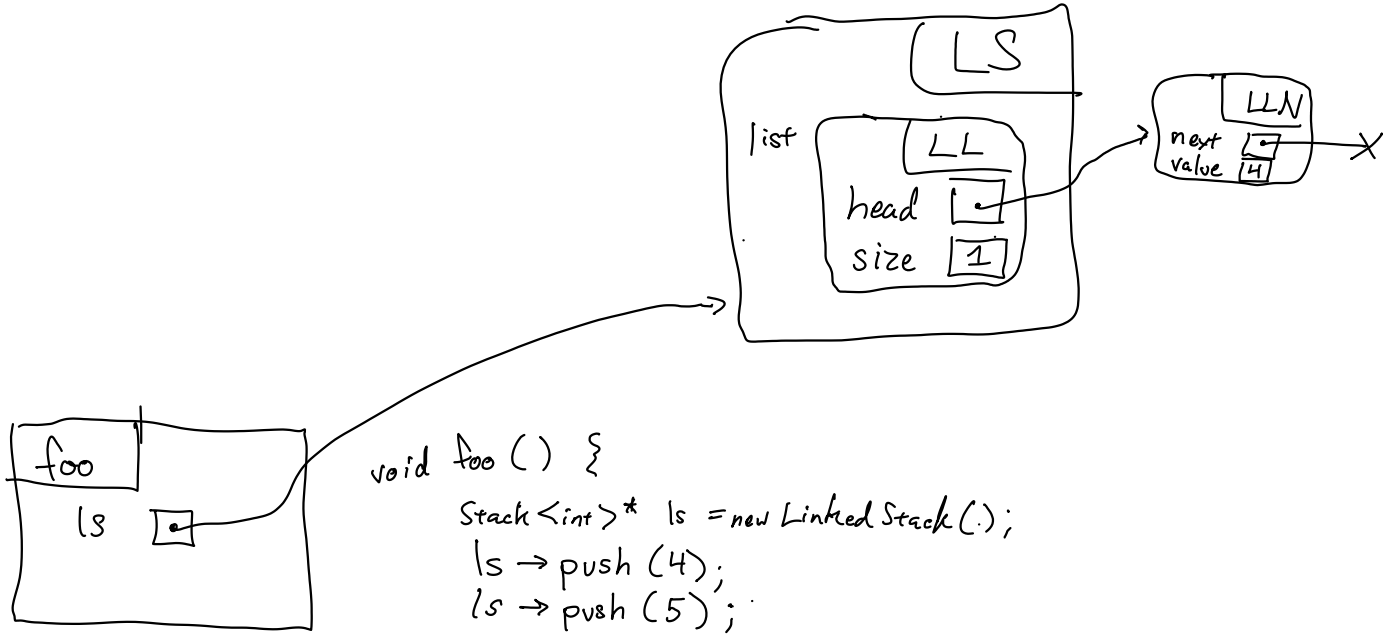 LS
list
LL
head
size 1
LLN
next
value 4
X
foo
ls
void foo() {
Stack<int>* ls = new LinkedStack();
ls → push (4);
ls → push (5);